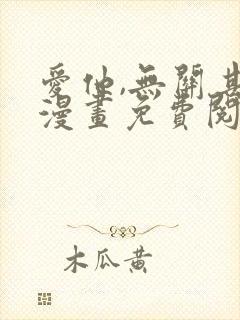 愛他,無關其
漫畫免費閱
木瓜黃